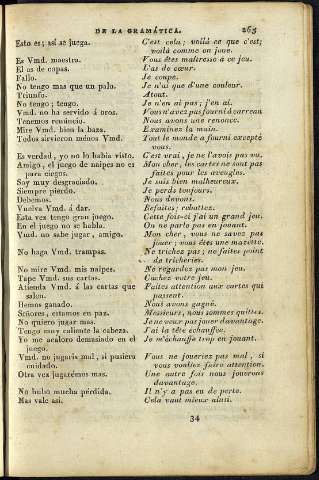 DE LA GRAMÁTICA. 265
Esto es; así se juega. C'est cela; voilà ce que c'est;
voilà comme on joue.
Es Vmd. maestra. Vous êtes maîtresse à ce jeu.
El as de copas. L'as de cœur.
Fallo. Je coupe.
No tengo mas que un palo. Je n'ai que d'une couleur.
Triunfo. Atout.
No tengo; tengo. Je n'en ai pas; j'en ai.
Vmd. no ha servido á oros. Vous n'avez pas fourni à carreau
Tenemos renuncio. Nous avons une renonce.
Mire Vmd. bien la baza. Examinez la main.
Todos sirvieron ménos Vmd. Tout le monde a fourni excepté
vous.
Es verdad, yo no lo habia visto. C'est vrai, je ne l'avois pas vu.
Amigo, el juego de naipes no es Mon cher, les cartes ne sont pas
para ciegos. faites pour les aveugles.
Soy muy desgraciado. Je suis bien malheureux.
Siempre pierdo. Je perds toujours.
Debemos. Nous devons.
Vuelva Vmd. á dar. Refaites; rebattez.
Esta vez tengo gran juego. Cette fois-ci j'ai un grand jeu.
En el juego no se habla. On ne parle pas en jouant.
Vmd. no sabe jugar, amigo. Mon cher, vous ne savez pas
jouer; vous êtes une mazette.
No haga Vmd. trampas. Ne trichez pas; ne faites point
de tricheries.
No mire Vmd. mis naipes. Ne regardez pas mon jeu.
Tape Vmd. sus cartas. Cachez votre jeu.
Atienda Vmd. á las cartas que Faites attention aux cartes qui
salen. passent.
Hemos ganado. Nous avons gagné.
Señores, estamos en paz. Messieurs, nous sommes quittes.
No quiero jugar mas. Je ne veux pas jouer davantage.
Tengo muy caliente la cabeza. J'ai la tête échauffée.
Yo me acaloro demasiado en el Je m'échauffe trop en jouant.
juego.
Vmd. no jugaria mal, si pusiera Vous ne joueriez pas mal, si
cuidado. vous vouliez faire attention.
Otra vez jugarémos mas. Une autre fois nous jouerons
davantage.
No hubo mucha pérdida. Il n'y a pas eu de perte.
Mas vale así. Cela vaut mieux ainsi.
34